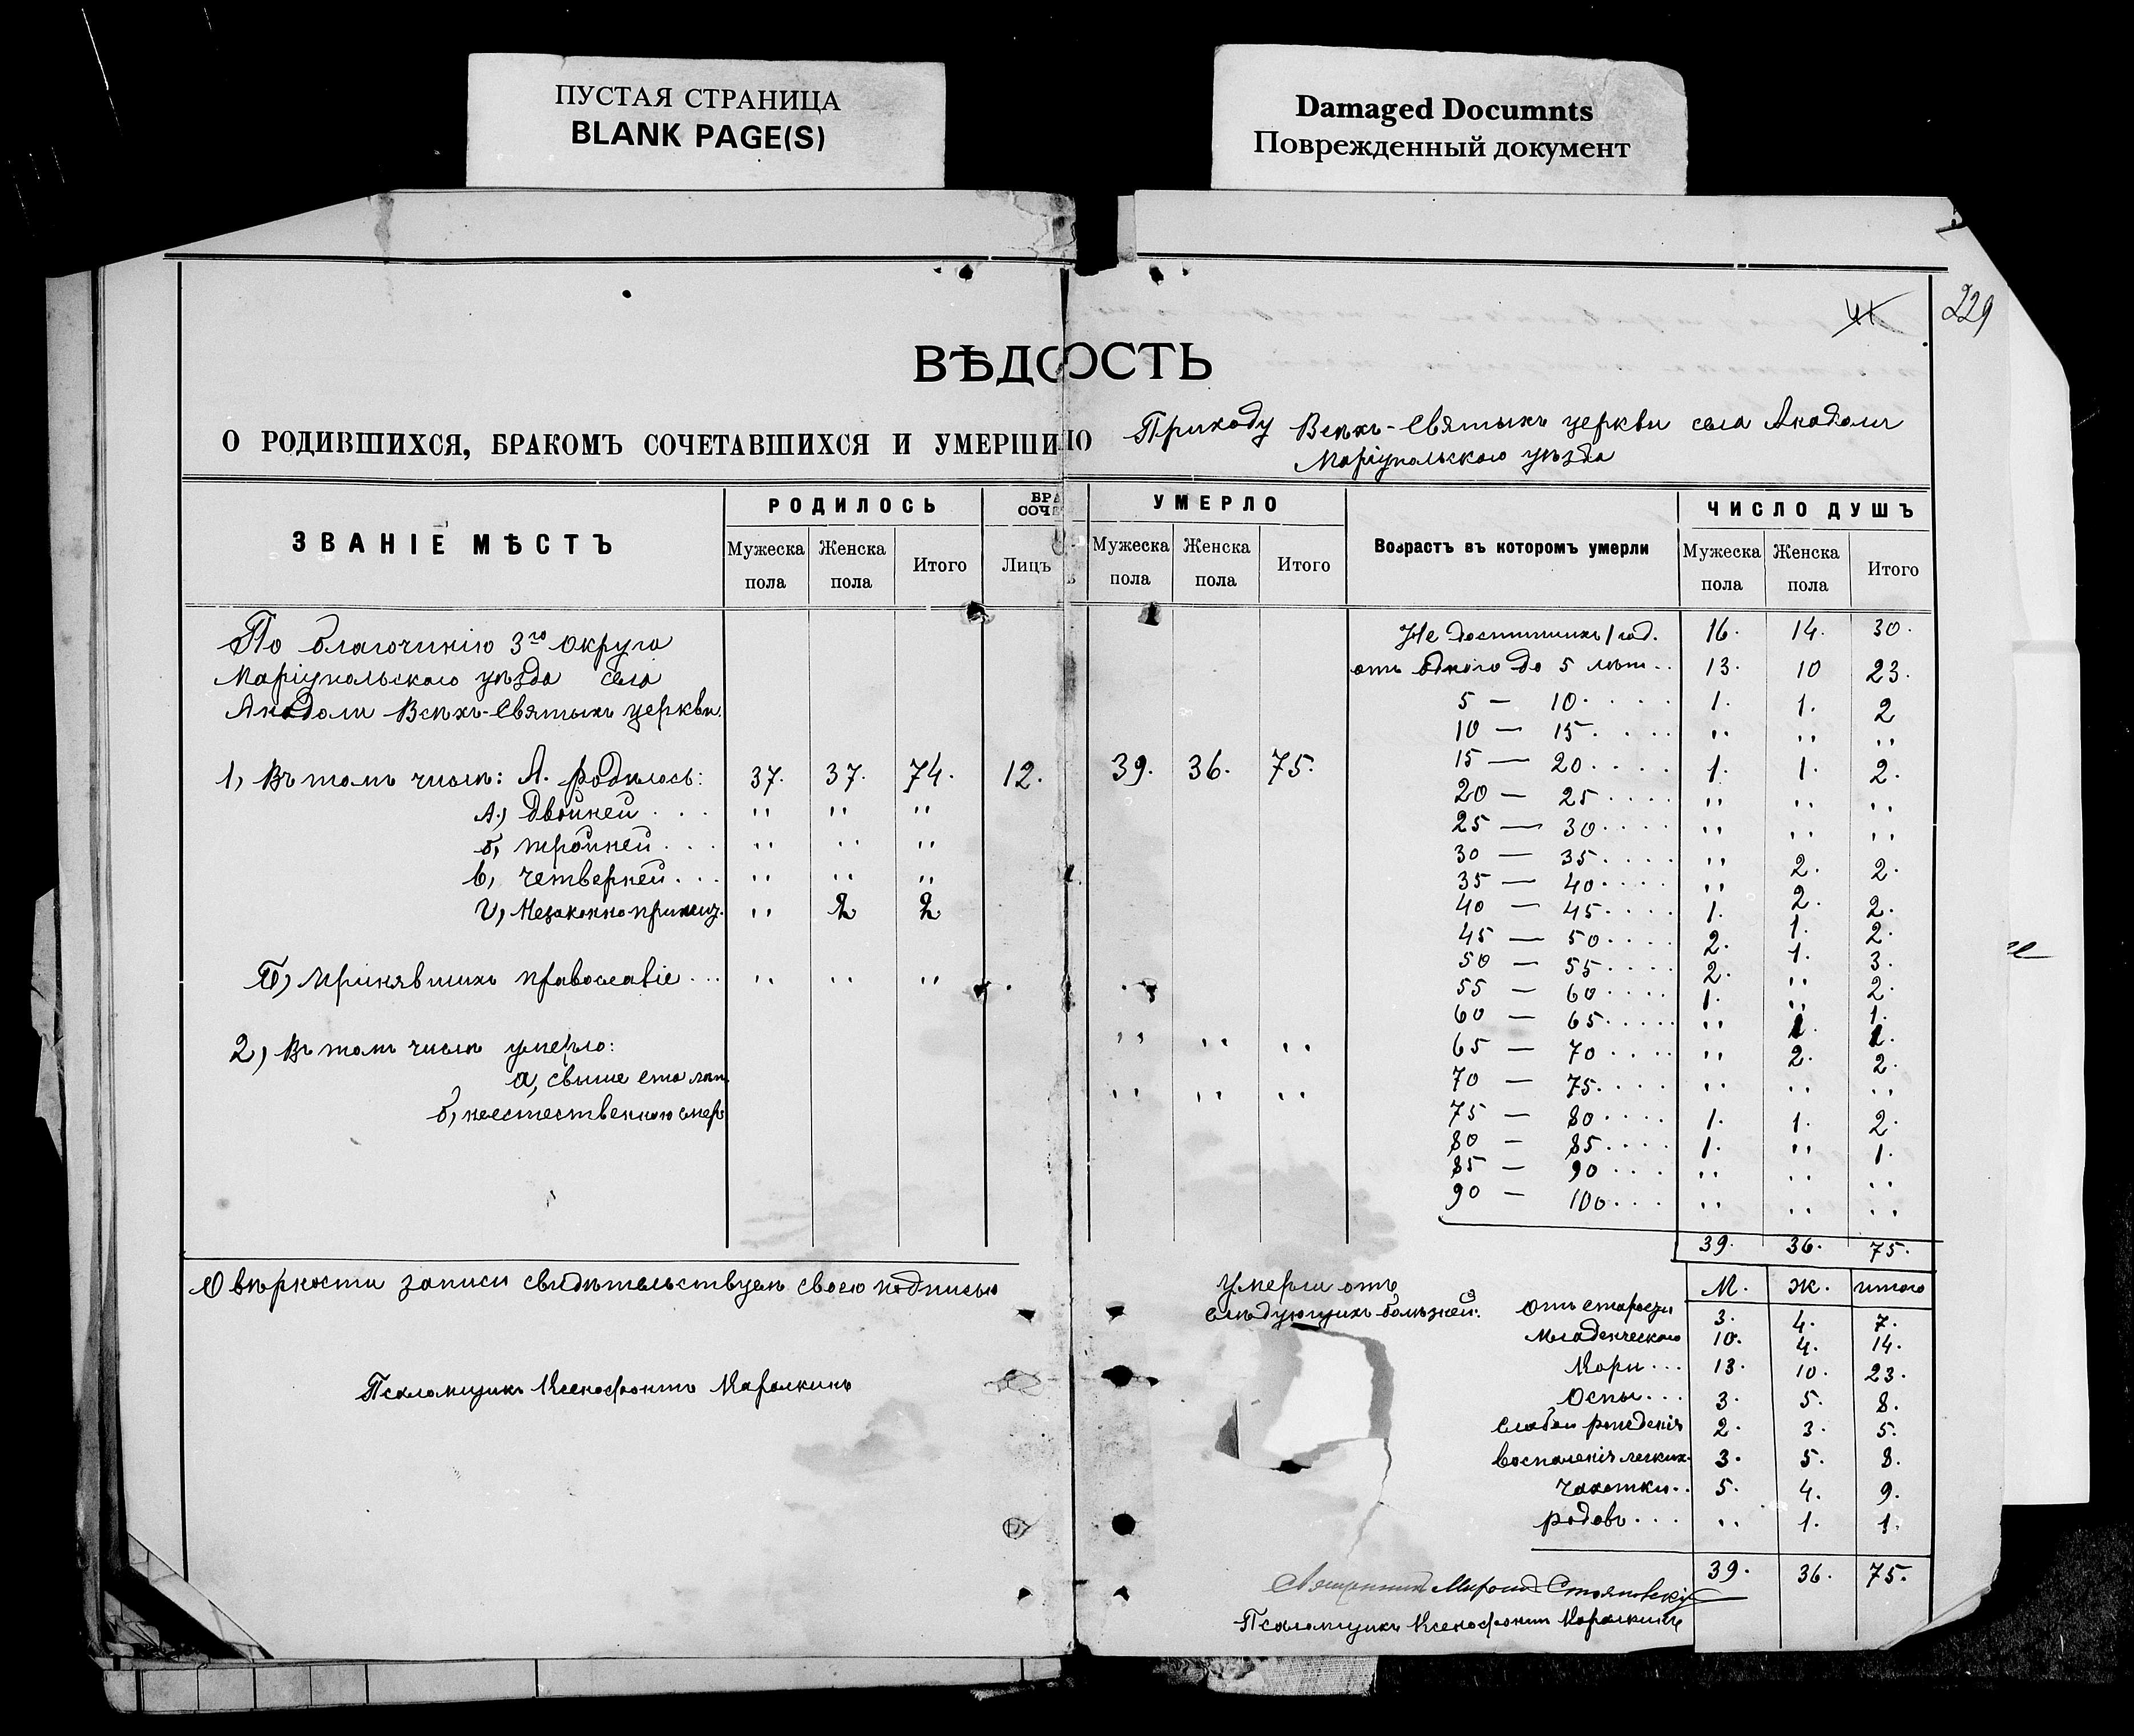 ПУСТАЯ СТРАНИЦА
BLANK PAGE(S)
Damaged Documnts
Поврежденный документ
229
ВѢДОСТЬ
О РОДИВШИХСЯ, БРАКОМЪ СОЧЕТАВШИХСЯ И УМЕРШИ ПО Приходу Всѣхъ-Святыхъ церкви села Анадоли
Маріупольскаго уѣзда
ЗВАНІЕ МѢСТЪ
РОДИЛОСЬ
Мужеска пола Женска пола Итого
БРА
СОЧЕ
Лицъ
УМЕРЛО
Мужеска пола Женска пола Итого
Возрастъ въ которомъ умерли
ЧИСЛО ДУШЪ
Мужеска пола Женска пола Итого
По благочинію 3го округа
Маріупольскаго уѣзда села
Анадоли Всѣхъ-Святыхъ церкви.
1, Въ томъ числѣ: А. родилось: 37. 37. 74. 12. 39. 36. 75.
а,) двойней . . . " " "
б, тройней . . . " " "
в, четверней . . . " " "
г, Незаконноприжи. " 2 2
Б, Принявшихъ православіе . . . " " "
2, Въ томъ числѣ умерло: " " "
а, свыше ста лѣт " " "
б, неестественною смер
Не достигшихъ 1 год. 16. 14. 30.
отъ одного до 5 лѣт. . 13. 10 23.
5 — 10. . . . 1. 1. 2
10 — 15. . . . " " "
15 — 20. . . . 1. 1. 2.
20 — 25 . . . . " " "
25 — 30. . . . " " "
30 — 35. . . . " 2. 2.
35 — 40. . . . " 2. 2.
40 — 45. . . . 1. 1. 2.
45 — 50. . . . 2. 1. 3.
50 — 55. . . . 2. " 2.
55 — 60. . . . 1. " 1.
60 — 65. . . . " 1. 1.
65 — 70 . . . . " 2. 2.
70 — 75. . . . " " "
75 — 80. . . . 1. 1. 2.
80 — 85. . . . 1. " 1.
85 — 90 . . . " " "
90 — 100. . . " " "
39. 36. 75.
О вѣрности записи свидѣтельствуемъ своею подписью
Псаломщикъ Ксенофонтъ Каралкинъ
Умерли отъ
слѣдующихъ болѣзней:
М. Ж. итого
Отъ старости 3. 4. 7.
Младенческаго 10. 4. 14.
Кори . . . 13. 10. 23.
Оспы . . . 3. 5. 8.
Слабаго рожденія 2. 3. 5.
Воспаленія легких. 3. 5. 8.
Чахотки. . 5. 4. 9.
Родовъ . . . " 1. 1.
39. 36. 75.
Священникъ Миронъ Стояновскій
Псаломщикъ Ксенофонтъ Каралкинъ